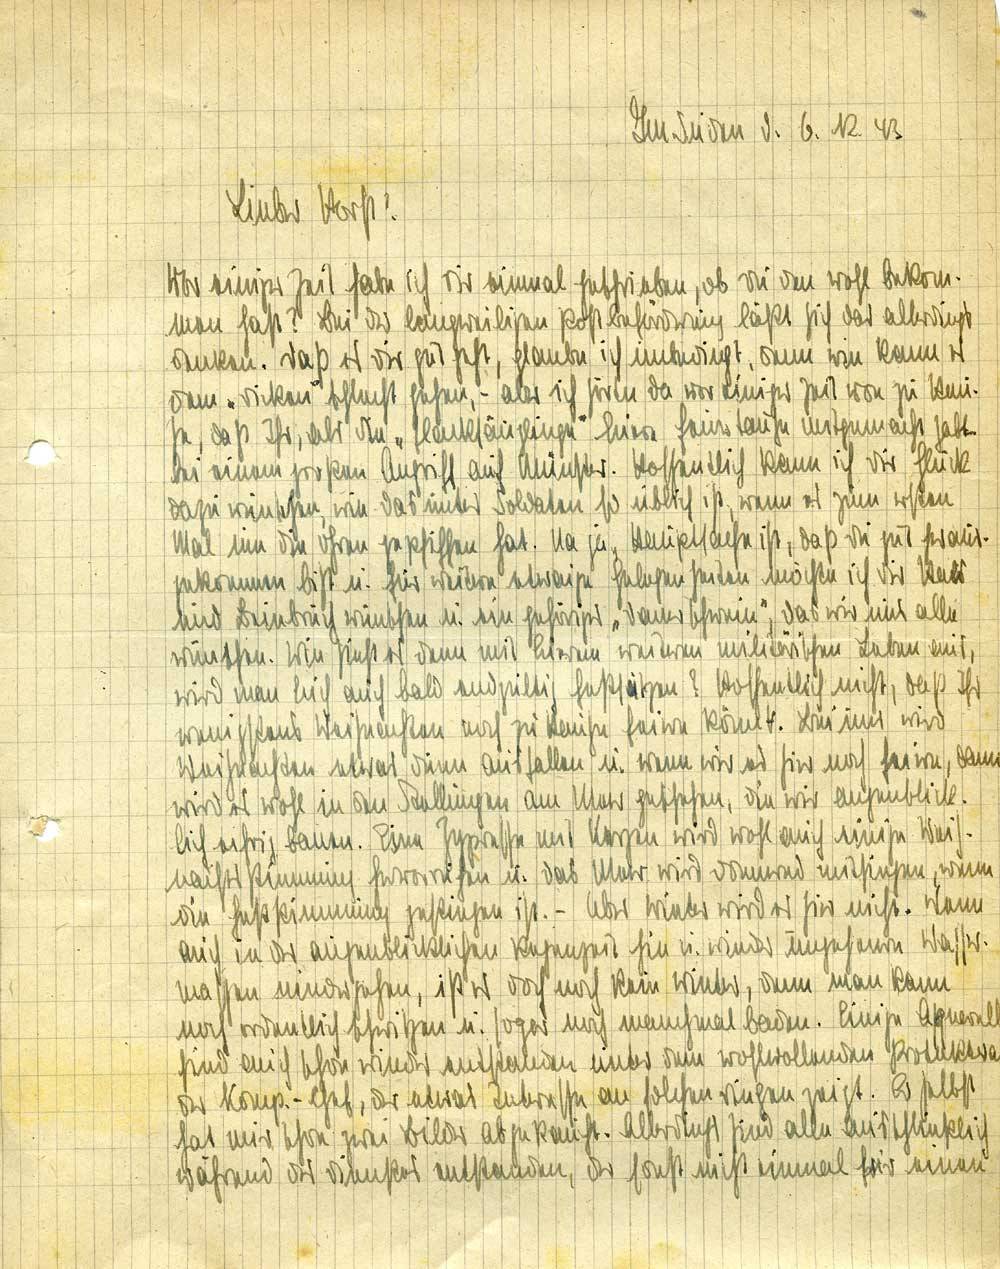 Im Süden d. 6. 12. 43
Lieber Horst!
Vor einiger Zeit habe ich dir einmal geschrieben, ob du den wohl bekom-
men hast? Bei der langweiligen Postbeförderung läßt sich das allerdings
denken. Daß es dir gut geht, glaube ich unbedingt, denn wie kann es
dem „dicken" schlecht gehen, - aber ich hörte da vor einiger Zeit von zu Hau-
se, daß Ihr, als die „Flaksäuglinge" Eure Feuertaufe mitgemacht habt
bei einem großen Angriff auf Münster. Hoffentlich kann ich dir Glück
dazu wünschen, wie das unter Soldaten so üblich ist, wenn es zum ersten
Mal um die Ohren gepfiffen hat. Na ja, Hauptsache ist, daß du gut heraus-
gekommen bist u. für weitere etwaige Gelegenheiten möchte ich dir Hals
und Beinbruch wünschen u. ein gehöriges „Dauerschwein", das wir uns alle
wünschen. Wie sieht es denn mit Eurem weiteren militärischen Leben aus,
wird man Euch auch bald endgültig festsetzen? Hoffentlich nicht, daß Ihr
wenigstens Weihnachten noch zu Hause feiern könnt. Bei uns wird
Weihnachten etwas dünn ausfallen u. wenn wir es hier noch feiern, dann
wird es wohl in den Stellungen am Meer geschehen, die wir augenblick-
lich eifrig bauen. Eine Zypresse mit Kerzen wird wohl auch einige Weih-
nachtsstimmung hervorrufen u. das Meer wird donnernd mitsingen, wenn
die Feststimmung gestiegen ist. - Aber Winter wird es hier nicht. Wenn
auch in der augenblicklichen Regenzeit hin u. wieder ungeheure Wasser-
massen niedergehen, ist es doch noch kein Winter, denn man kann
noch ordentlich schwitzen u. sogar noch manchmal baden. Einige Aquarelle
sind auch schon wieder entstanden unter dem wohlwollenden Protektorat
der Komp.-Chef, der etwas Interesse an solchen Dingen zeigt. Er selbst
hat mir schon zwei Bilder abgekauft. Allerdings sind alle ausschließlich
während des Dienstes entstanden, der sonst nicht einmal für einen